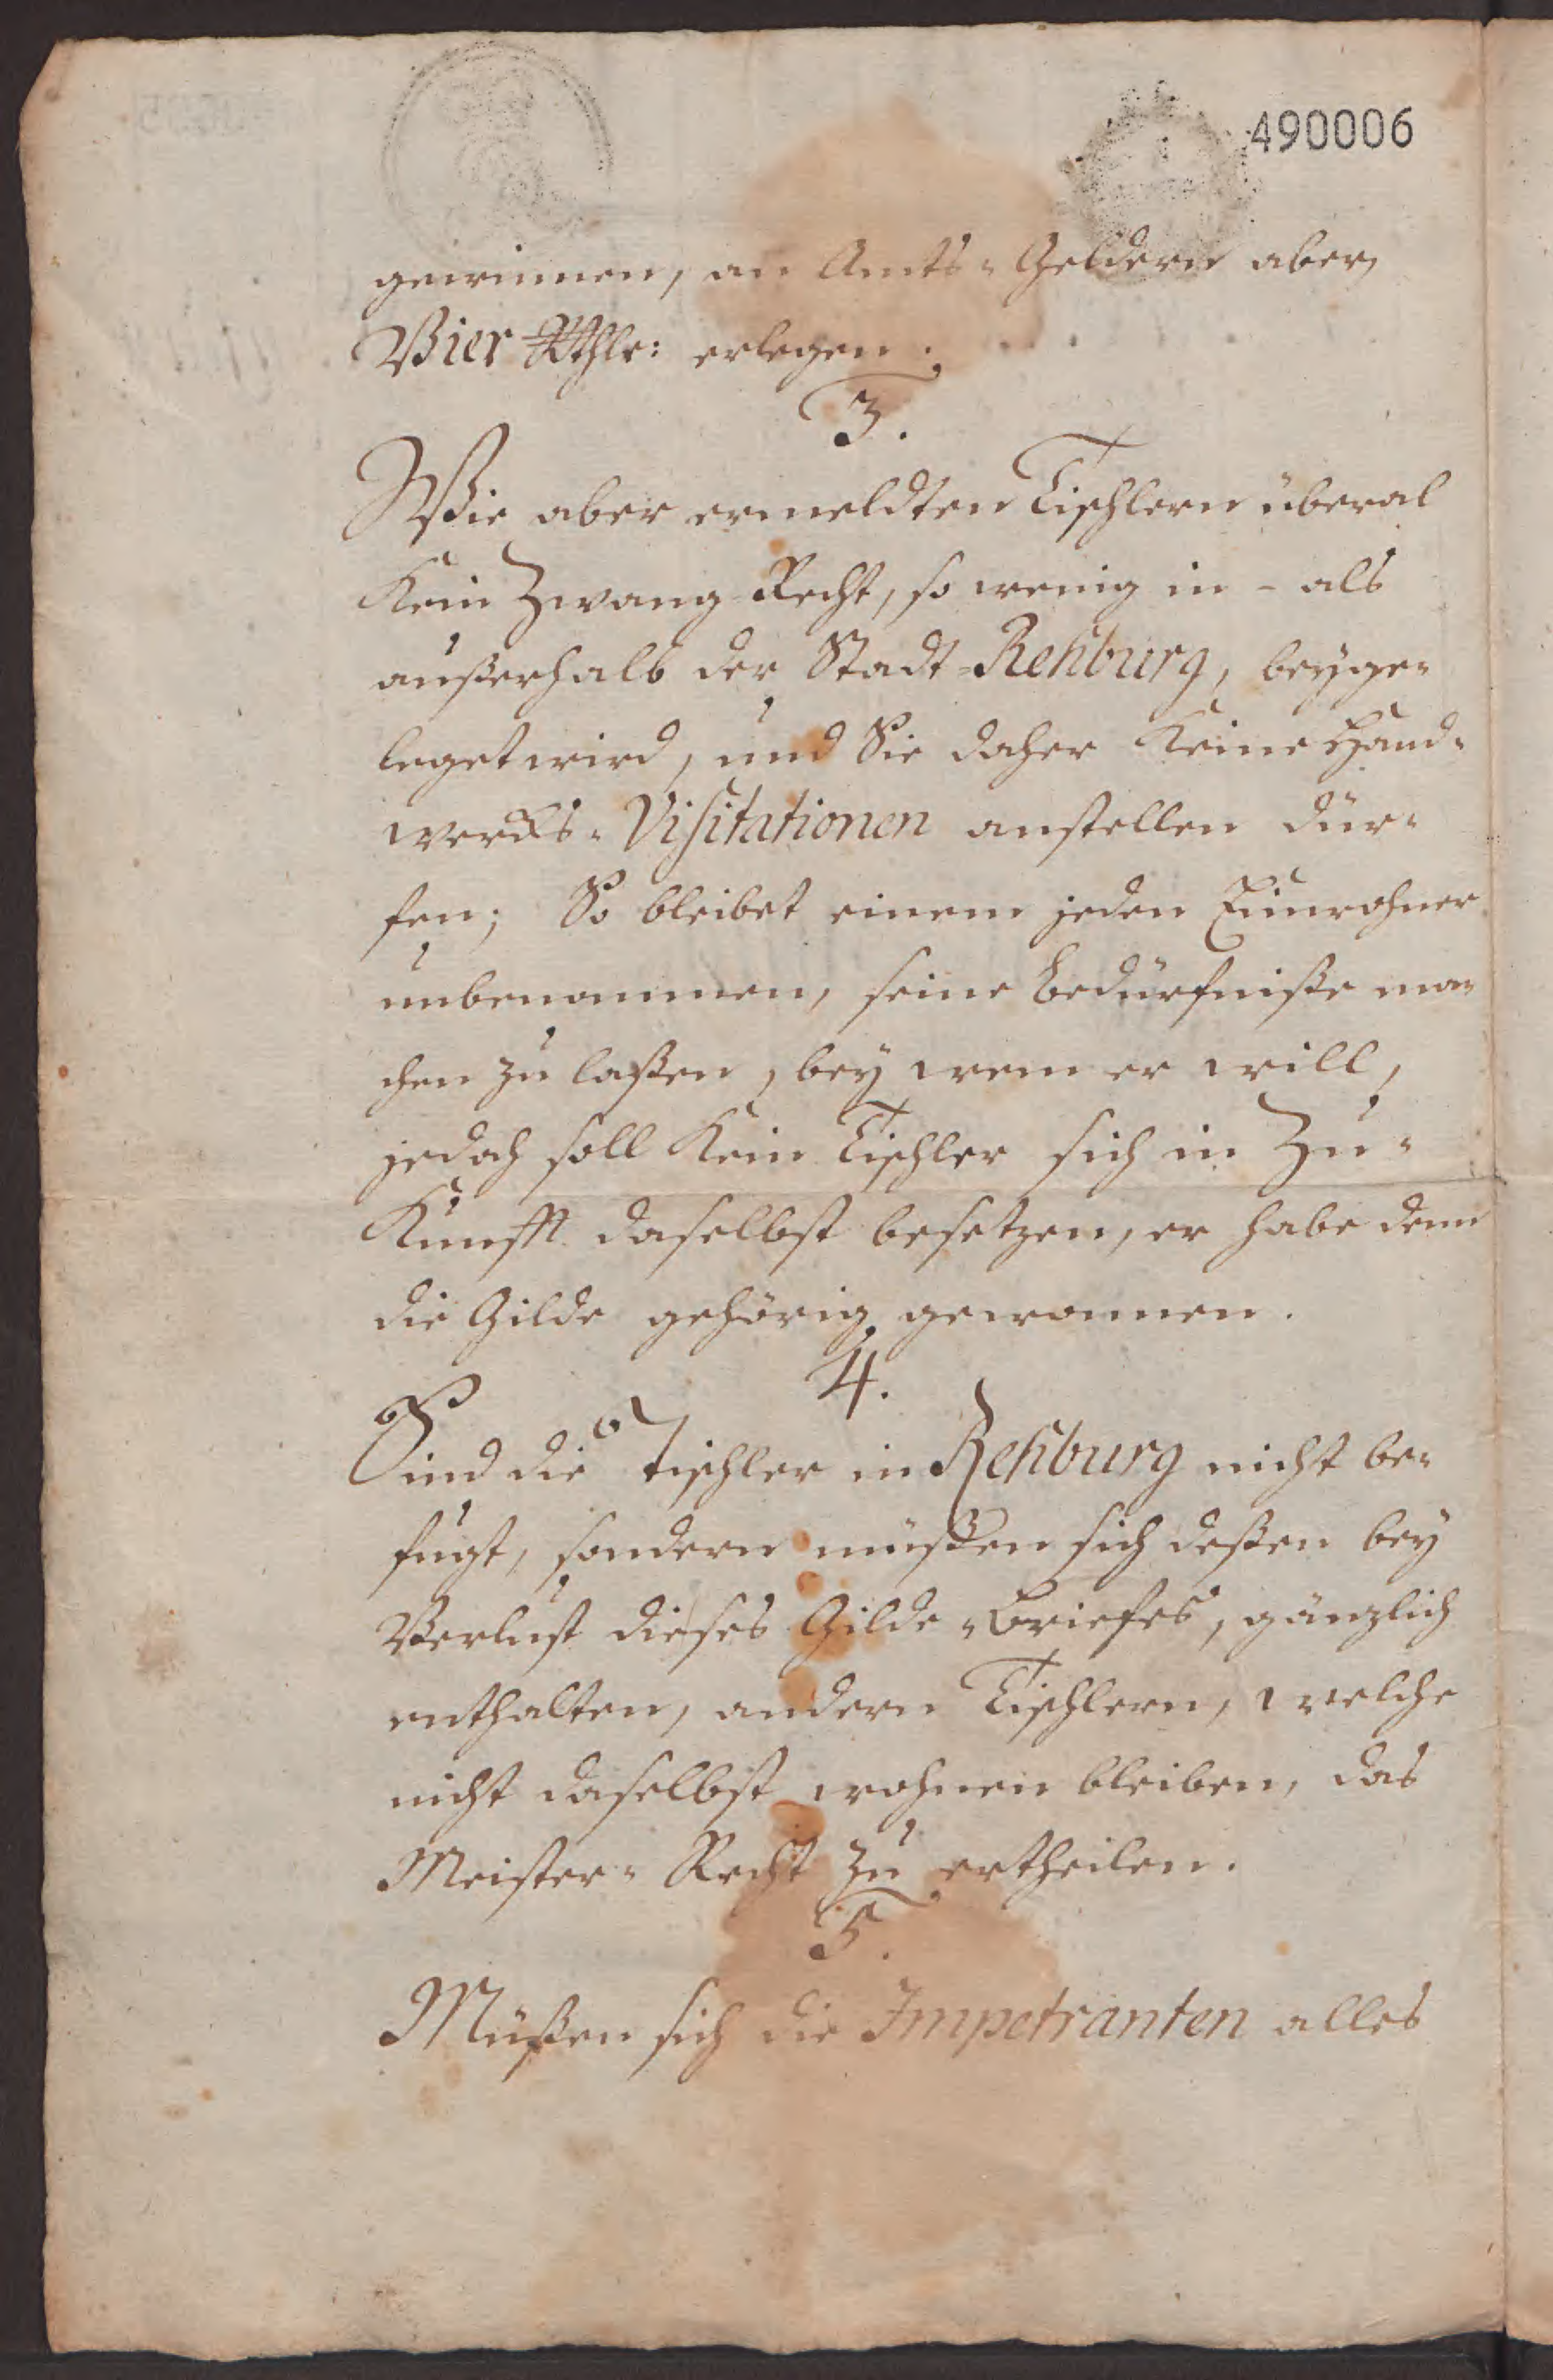 490006
gewinnen, an Amts-Geldern aber,
Vier Rthlr: erlegen.
3.
Wie aber ermeldten Tischlern überal
Kein Zwang-Recht, so wenig in - als
außerhalb der Stadt-Rehburg, beyge-
leget wird, und Sie daher Keine Hand-
wercks-Visitationen anstellen dür-
fen; So bleibet einem jeden Einwohner
unbenommen, seine Bedürfniße ma-
chen zu laßen, bey wem er will,
jedoch soll Kein Tischler sich in Zu-
Kunfft daselbst besetzen, er habe denn
die Gilde gehörig gewonnen.
4.
Sind die Tischler in Rehburg nicht be-
fugt, sondern müßen sich deßen bey
Verlust dieses Gilde-Briefes, gänzlich
enthalten, andern Tischlern, welche
nicht daselbst wohnen bleiben, das
Meister-Recht zu ertheilen.
5.
Müßen sich die Impetranten alles